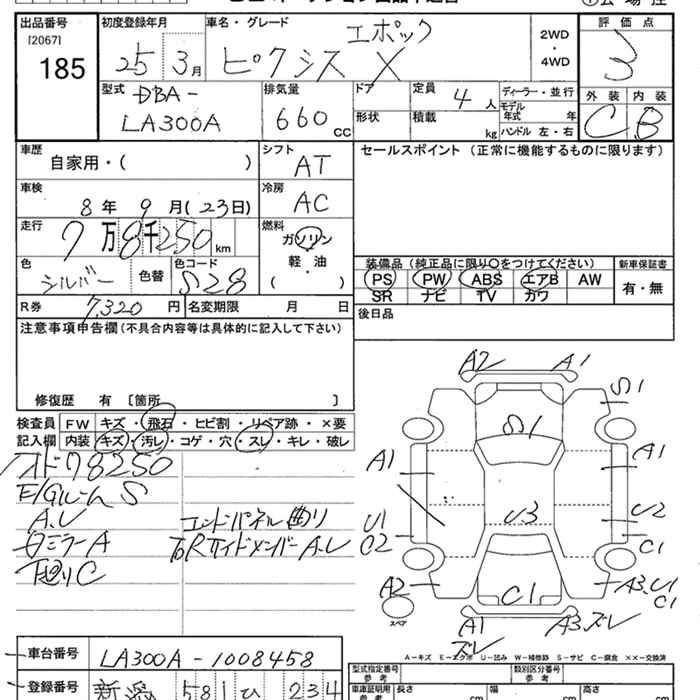 出品番号 初度登録年月 車名・グレード 評価点
[2067] エポック
185 25 3月 ピクシス X 2WD・4WD 3
型式 排気量 ドア 定員 ディーラー・並行 外装 内装
DBA-
LA300A 660cc 4人 モデル年式 年 C B
形状 積載 kg ハンドル 左・右
車歴 シフト セールスポイント (正常に機能するものに限ります)
自家用・( ) AT
車検 冷房
8年9月(23日) AC
走行 燃料
7万8千250km ガソリン
軽・油
( )
色 色コード
シルバー 色替 S28
装備品 (純正品に限り○をつけてください) 新車保証書
PS PW ABS エアB AW 有・無
SR ナビ TV カワ
R券 7,320円 名変期限 月 日 後日品
注意事項申告欄 (不具合内容等は具体的に記入して下さい)
修復歴 有 [箇所 ]
検査員 FW キズ・飛石・ヒビ割・リペア跡・×要
記入欄 内装 キズ・汚レ・コゲ・穴・スレ・キレ・破レ
78250
E/Gルーム S
A.U
ミラーA
下廻りC
エンドパネル曲り
R サイドメンバーA.U
A2 A1
S1
S1
A1 A1
U3 U2
U1
C2 C1
A2 C1 A3.U1
C1
スペア
A1 A3.ズレ
ズレ
A－キズ E－エクボ U－凹み W－補修跡 S－サビ C－腐食 ××－交換済
車台番号 LA300A-1008458
型式指定番号 類別区分番号
参考 参考
登録番号 581 ひ 234
車庫証明用 長さ 幅 高さ
参考 cm cm cm